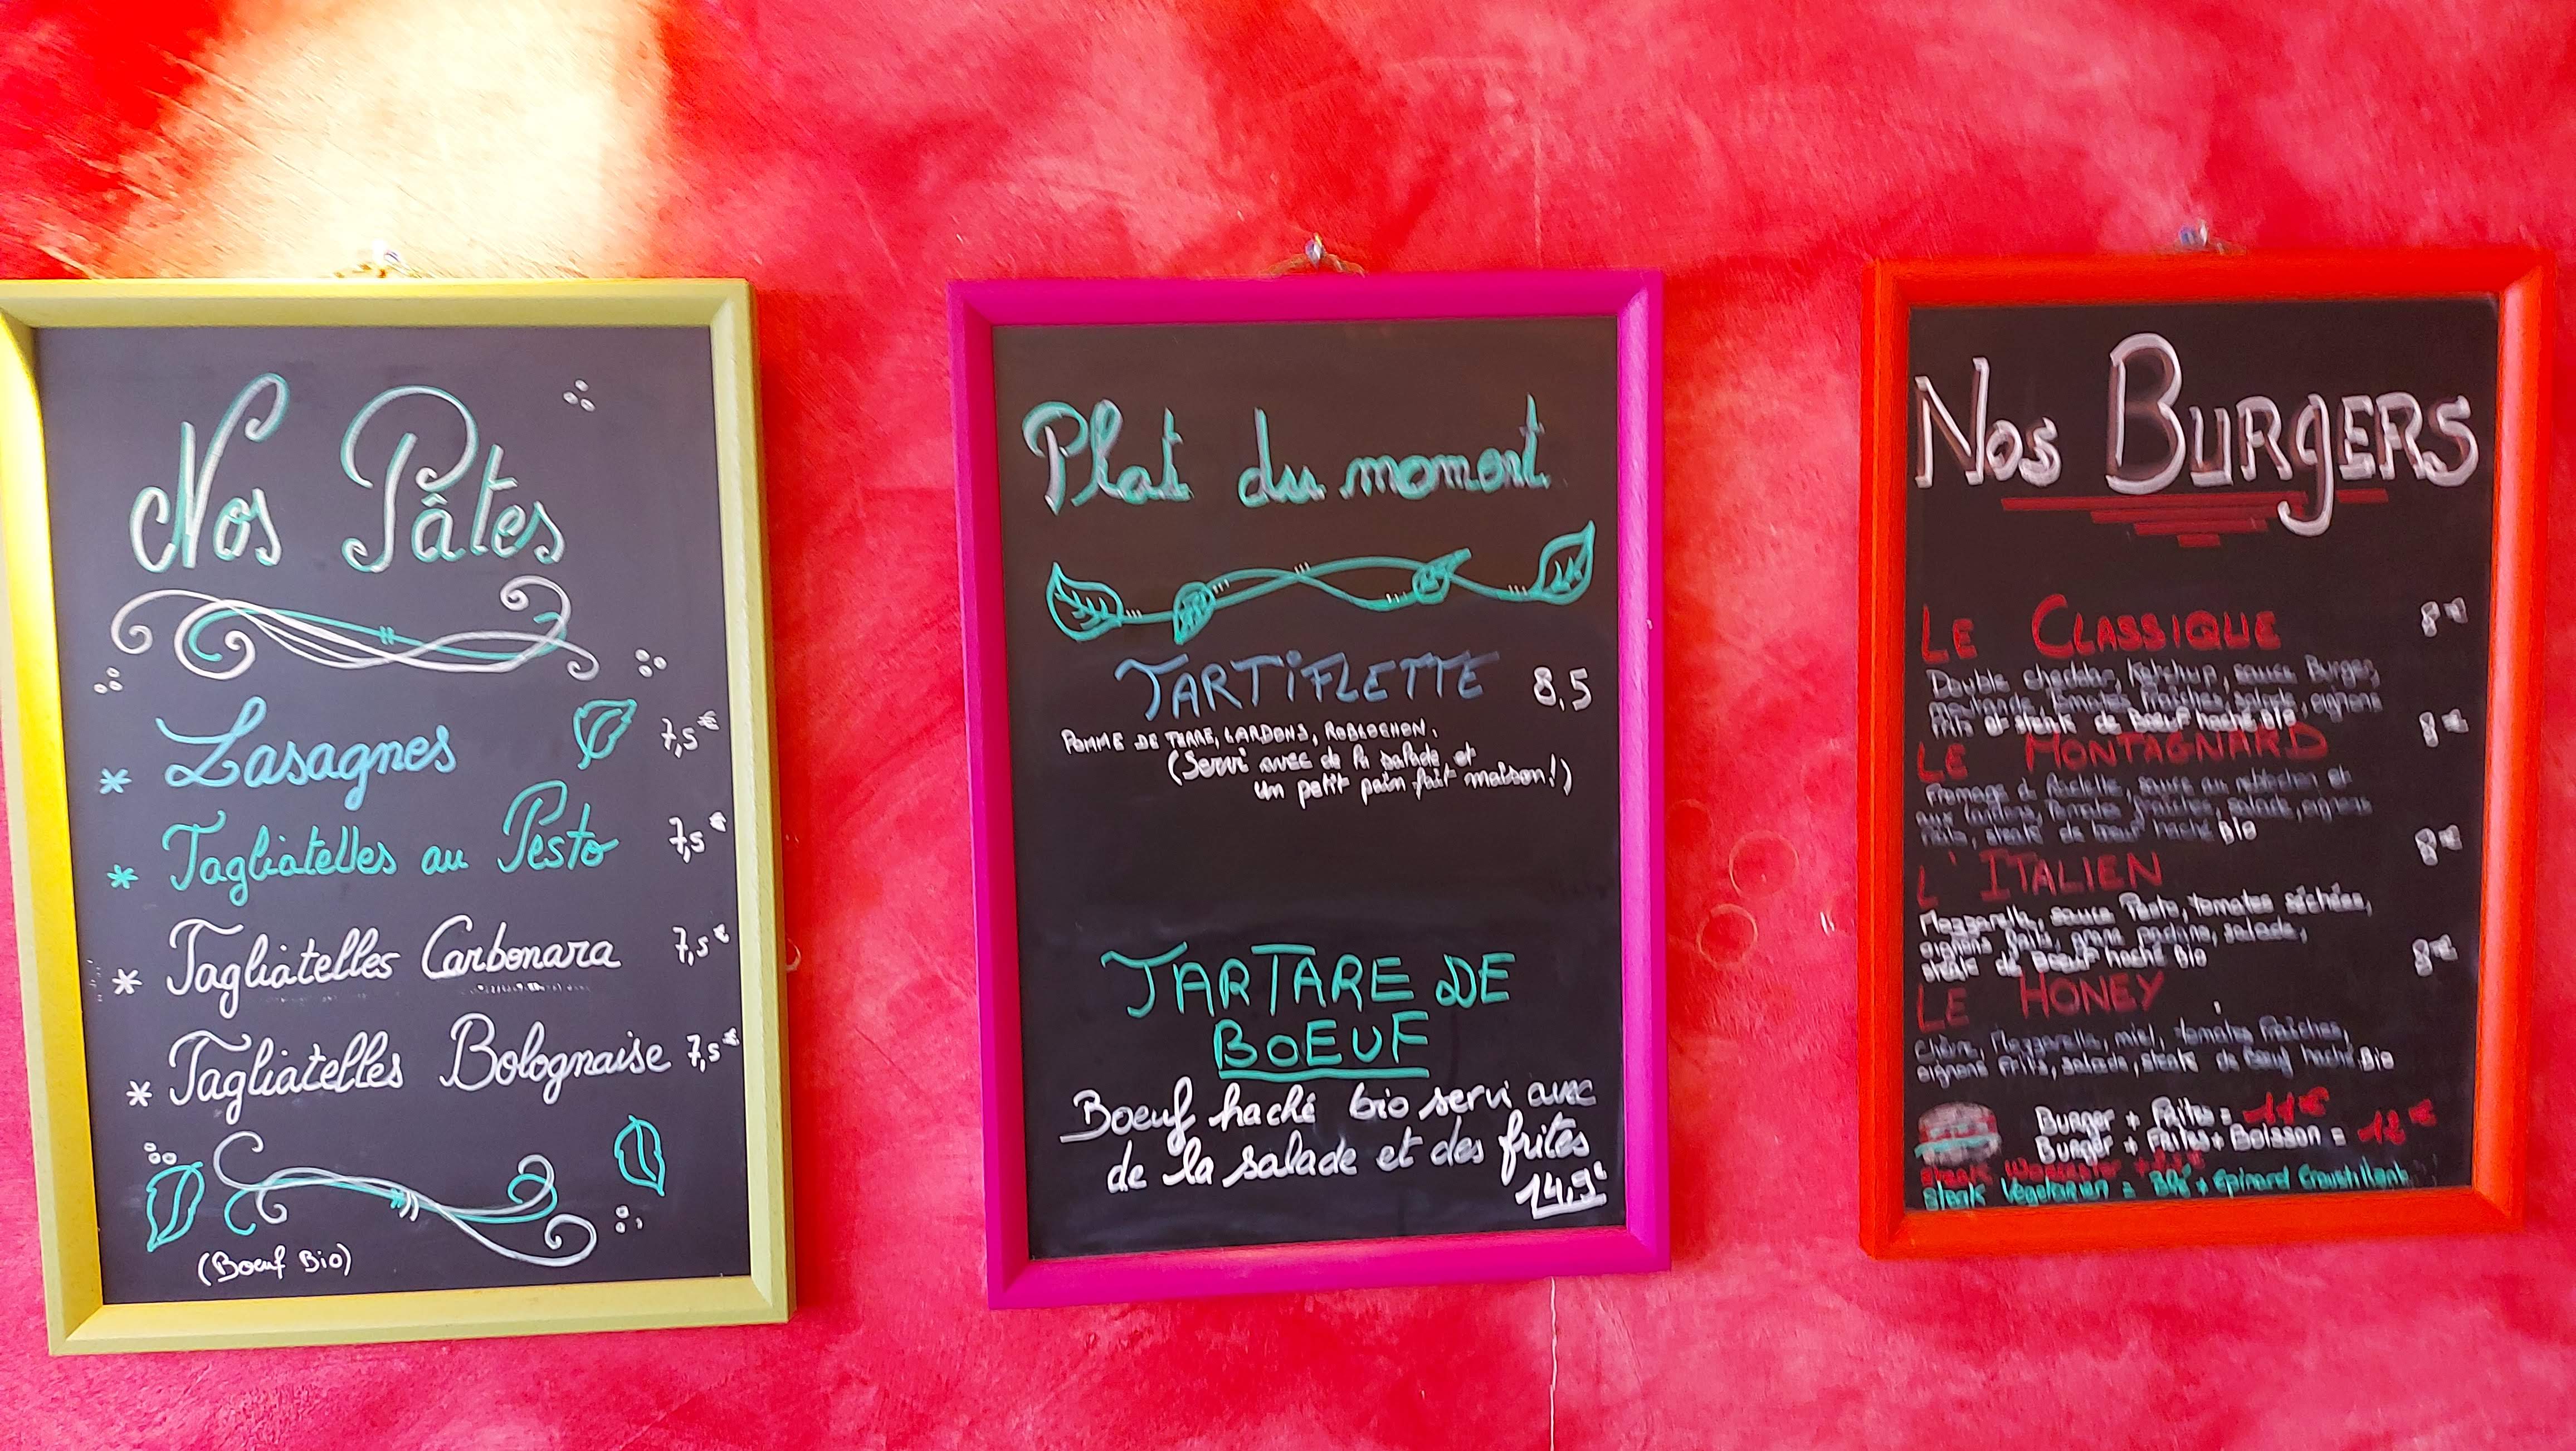 Nos Pâtes
* Lasagnes 7,5€
* Tagliatelles au Pesto 7,5€
* Tagliatelles Carbonara 7,5€
* Tagliatelles Bolognaise 7,5€
(Boeuf Bio)
Plat du moment
TARTIFLETTE 8,5
POMME DE TERRE, LARDONS, REBLOCHON.
(Servi avec de la salade et
un petit pain fait maison!)
TARTARE DE
BOEUF
Boeuf haché bio servi avec
de la salade et des frites
14,9€
Nos BURGERS
LE CLASSIQUE 8€
Double cheddar, Ketchup, sauce Burger,
moutarde, tomates fraîches, salade, oignons
frits et steak de boeuf haché bio
LE MONTAGNARD 8€
Fromage à Raclette, sauce au reblochon et
aux lardons, tomates fraîches, salade, oignons
frits, steak de boeuf haché bio
L'ITALIEN 8€
Mozzarella, sauce Pesto, tomates séchées,
oignons frits, grana padano, salade,
steak de boeuf haché bio
LE HONEY 8€
chèvre, Mozzarella, miel, tomates fraîches,
oignons frits, salade, steak de boeuf haché Bio
Burger + Frites = 11€
Burger + Frites + Boisson = 12€
Steak
Steak Végétarien = Blé + Epinard Croustillant